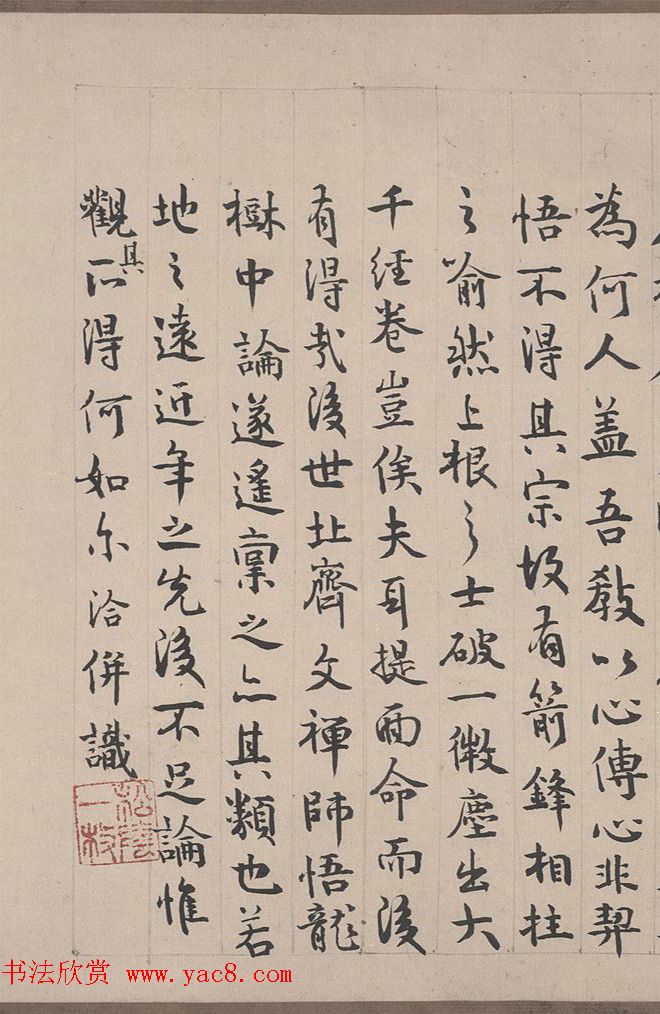 為何人盖吾教以心傳心非契
悟不得其宗故有箭鋒相拄
之喻然上根之士破一微塵出大
千経卷豈俟夫耳提面命而後
有得哉後世北齊文禅師悟龍
樹中論遂遙稟之亦其類也若
地之遠近年之先後不足論惟
觀其所得何如尔洽併識
松陰一枝
书法欣赏 www.yac8.com